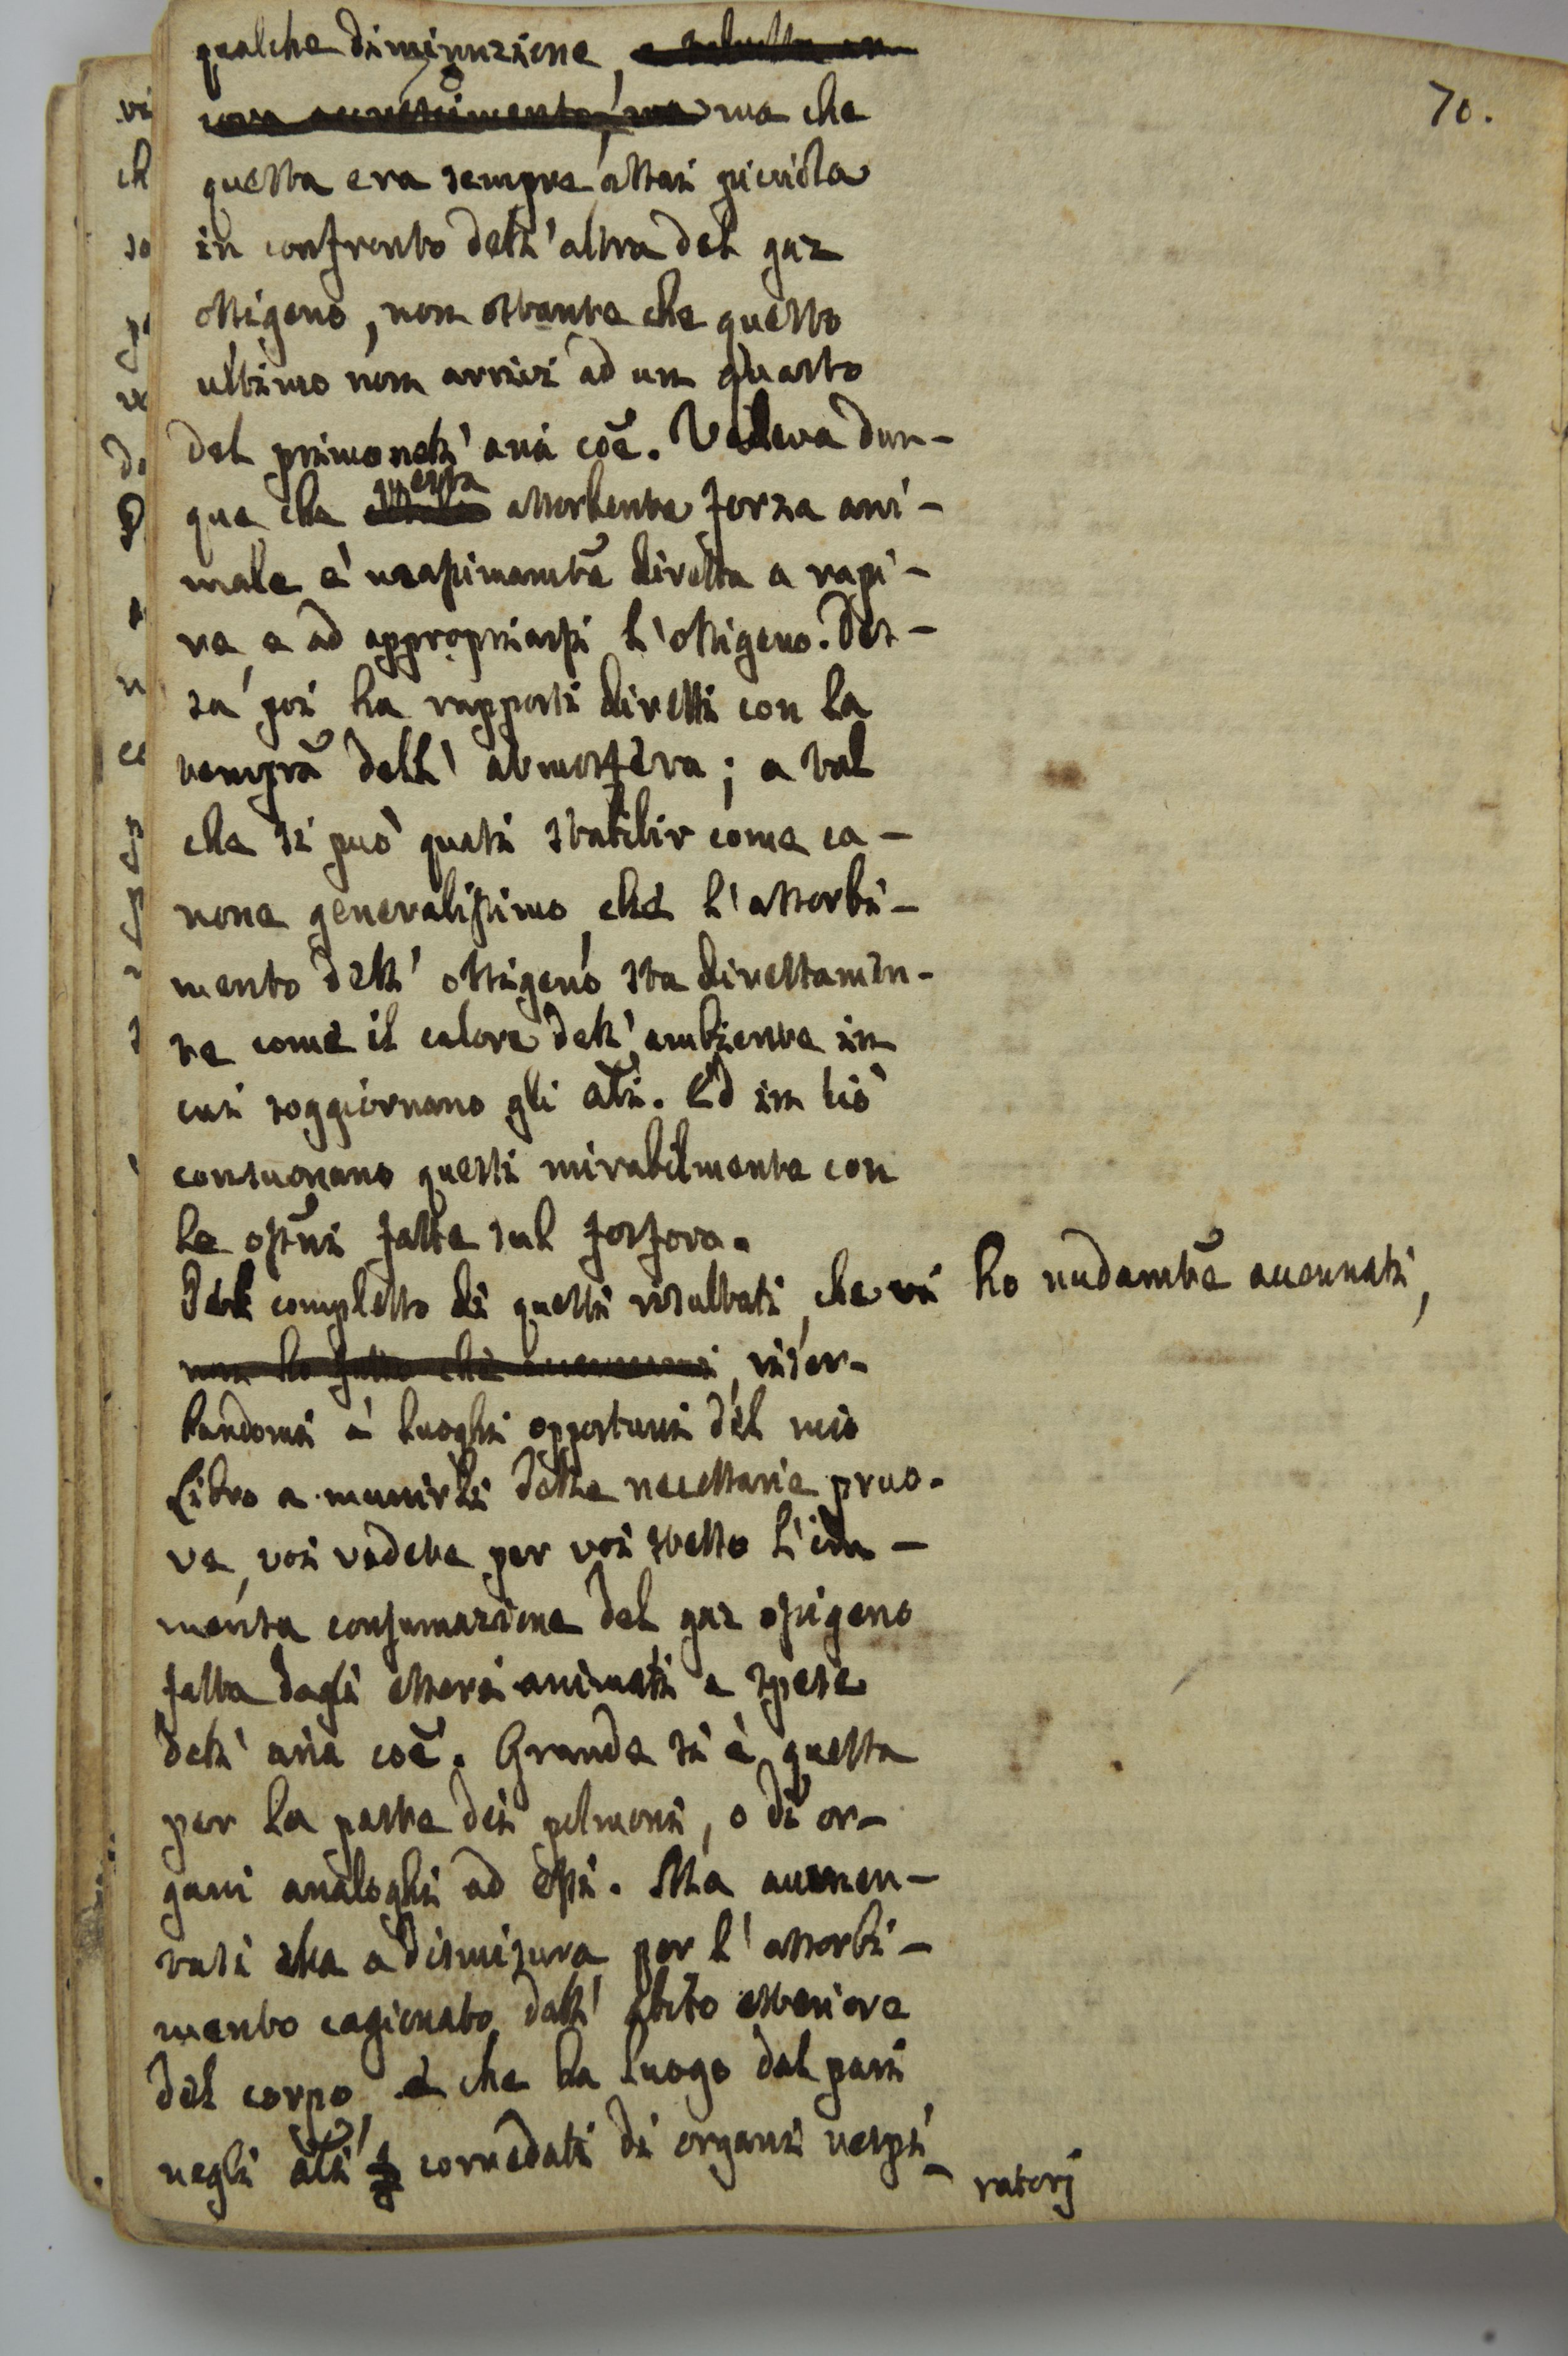 70.
qualche diminuzione, e talvolta an
cora accrescimento, ma ma che
questa era sempre assai picciola
in confronto dell'altra del gaz
ossigeno, non ostante che questo
ultimo non arrivi ad un quarto
del primo nell'aria coē. Vedeva dun-
que che questa assorbente forza ani-
male è massimamtē diretta a rapi-
re, e ad appropriarsi l'ossigeno. Des-
sa poi ha rapporti diretti con la
temprā dell'atmosfera; a tal
che si può quasi stabilir come ca-
none generalissimo che l'assorbi-
mento dell'ossigeno sta direttamen-
te come il calore dell'ambiente in
cui soggiornano gli alī. Ed in ciò
consuonano questi mirabilmente con
le ospnī fatte sul fosforo.
Dal complesso di questi risultati, che vi ho nudamtē accennati,
non ho fatto che accennarvi, riser-
bandomi à luoghi opportuni del mio
Libro a munirli delle necessarie pruo-
ve, voi vedete per voi stesso l'im-
mensa consumazione del gaz ossigeno
fatta dagli esseri animati a spese
dell'aria coē. Grande si è questa
per la parte dei polmoni, o di or-
gani analoghi ad essi. Ma aumen-
tasi ella a dismisura per l'assorbi-
mento cagionato dall'abito esteriore
del corpo, e che ha luogo del pari
negli alī corredati di organi respi-
ratorj